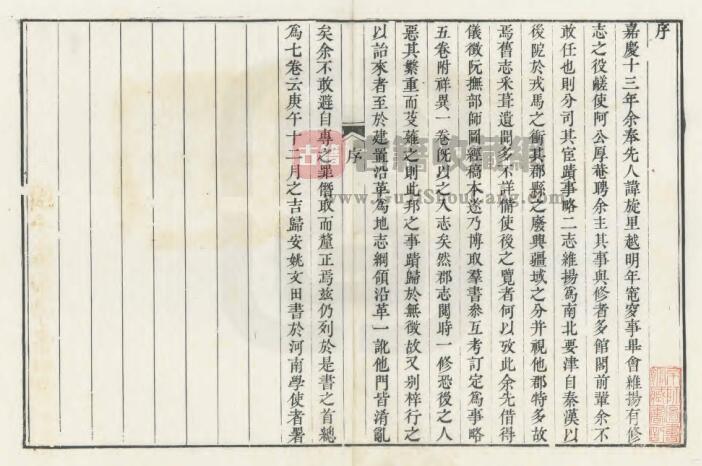 序
嘉慶十三年余奉先人諱旋里越明年窀穸事畢會維揚有修
志之役鹺使阿公厚菴聘余主其事與修者多館閣前輩余不
敢任也則分司其宦蹟事略二志維揚爲南北要津自秦漢以
後阨於戎馬之衝其郡縣之廢興疆域之分并視他郡特多故
焉舊志采葺遺聞多不詳備使後之覽者何以攷此余先借得
儀徵阮撫部師圖經稿本遂乃博取羣書參互考訂定爲事略
五卷附祥異一卷旣以之入志矣然郡志閱時一修恐後之人
惡其繁重而芟薙之則此邦之事蹟歸於無徵故又別梓行之
以詒來者至於建置沿革爲地志綱領沿革一訛他門皆淆亂
序
矣余不敢避自專之罪僭取而釐正焉兹仍列於是書之首總
爲七卷云庚午十二月之吉歸安姚文田書於河南學使者署
古籍收藏網
www.GuJiShouCang.com